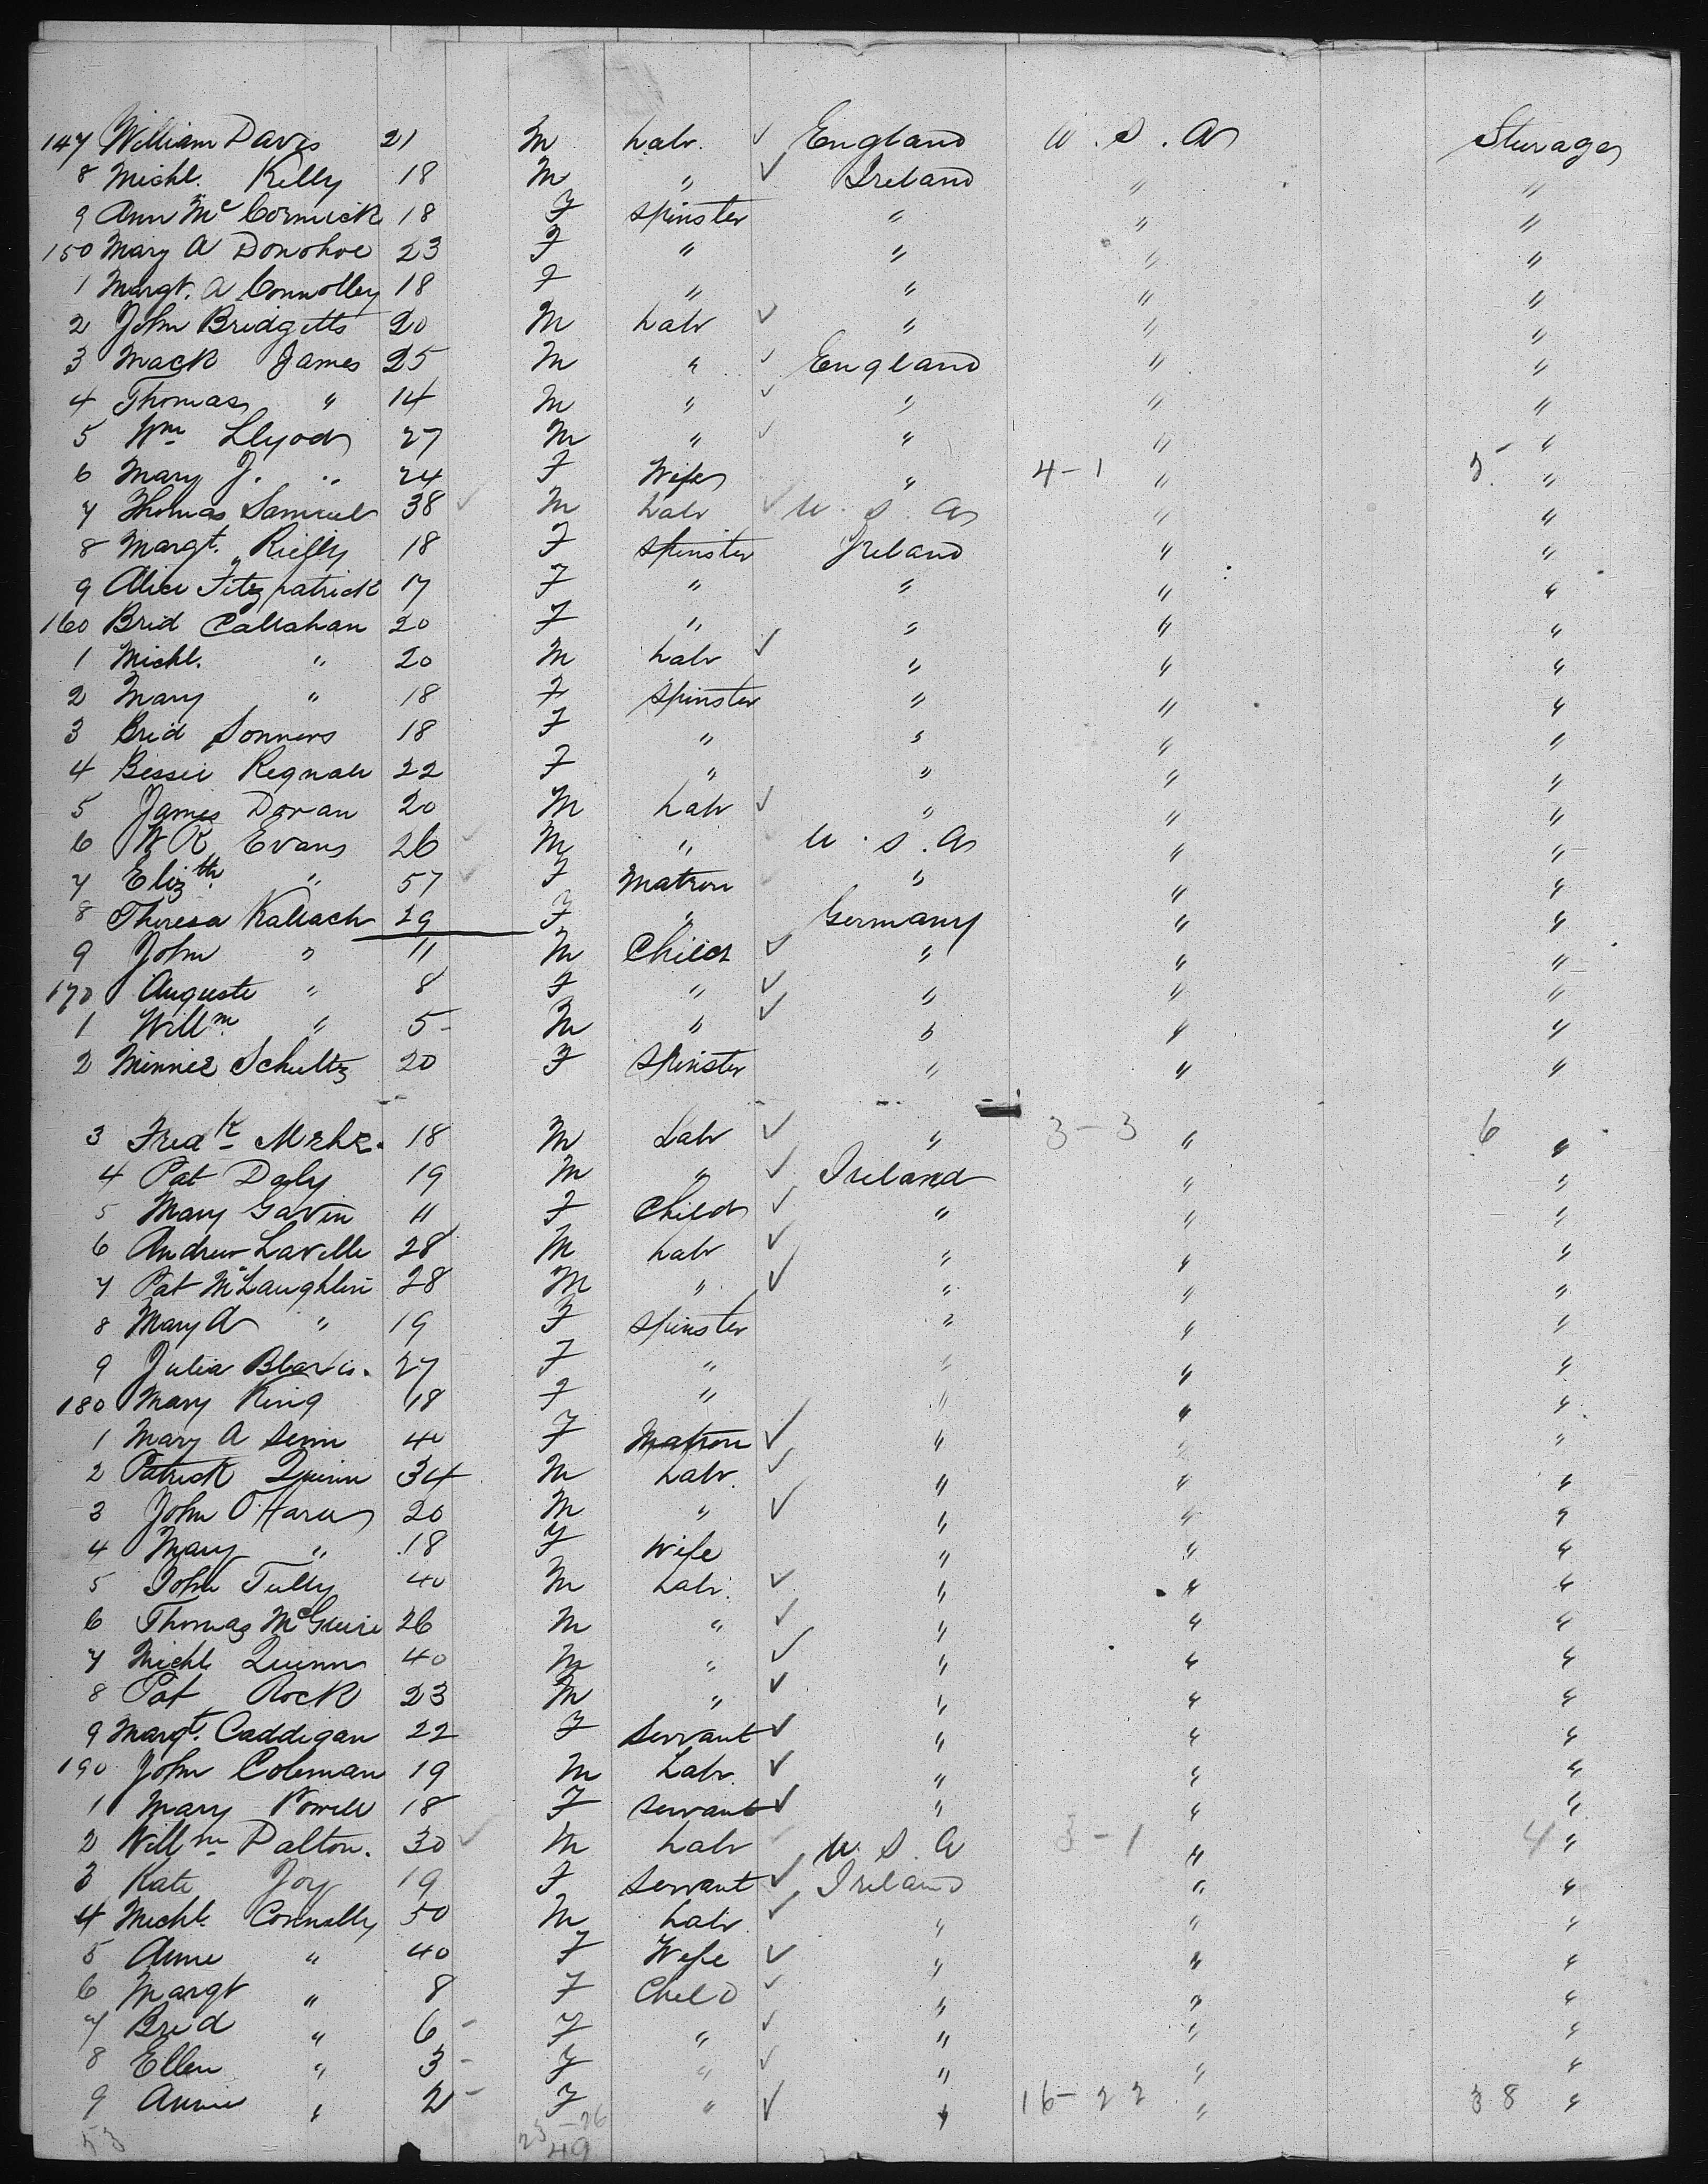 147 William Davis 21 M Labr. ✓ England U.S.A Steerage
8 Michl. Kelly 18 M " ✓ Ireland " "
9 Ann McCormick 18 F Spinster " " "
150 Mary A Donohoe 23 F " " " "
1 Margt. A Connolley 18 F " " " "
2 John Bridgetts 20 M Labr ✓ " " "
3 Mack James 25 M " ✓ England " "
4 Thomas " 14 M " ✓ " " "
5 Wm Llyod 27 M " ✓ " " "
6 Mary J. " 24 F Wife " 4-1 " 5 "
7 Thomas Samuel 38 ✓ M Labr ✓ U.S.A " "
8 Margt. Rielly 18 F Spinster Ireland " "
9 Alice Fitzpatrick 17 F " " " "
160 Brid Callahan 20 F " " " "
1 Michl. " 20 M Labr ✓ " " "
2 Mary " 18 F Spinster " " "
3 Brid Sonners 18 F " " " "
4 Bessie 22 F " " " "
5 James Doran 20 M Labr ✓ " " "
6 W R Evans 26 ✓ M " ✓ U.S.A " "
7 Elizth. " 57 ✓ F Matron ✓ " " "
8 Theresa Kallach 29 F " Germany " "
9 John " 11 M Child ✓ " " "
170 Auguste " 8 F " ✓ " " "
1 Willm. " 5- M " ✓ " " "
2 Minnie Schultz 20 F Spinster " " "
3 Fredk 18 M Labr ✓ " 3-3 " 6 "
4 Pat Daly 19 M " ✓ Ireland " "
5 Mary Gavin 11 F Child ✓ " " "
6 Andrew Lavelle 28 M Labr ✓ " " "
7 Pat McLaughlin 28 M " ✓ " " "
8 Mary A " 19 F Spinster " " "
9 Julia 27 F " " " "
180 Mary King 18 F " " " "
1 Mary A 40 F Matron ✓ " " "
2 Patrick Quinn 34 M Labr. ✓ " " "
3 John O'Hara 20 M " ✓ " " "
4 Mary " 18 F Wife " " "
5 John Tully 40 M Labr. ✓ " " "
6 Thomas McGuire 26 M " ✓ " " "
7 Michl. Quinn 40 M " ✓ " " "
8 Pat Rock 23 M " ✓ " " "
9 Margt. Caddigan 22 F Servant ✓ " " "
190 John Coleman 19 M Labr. ✓ " " "
1 Mary Powell 18 F Servant ✓ " " "
2 Willm Dalton. 30 ✓ M Labr ✓ U.S.A 3-1 " 4 "
3 Kate Joy 19 F Servant ✓ Ireland " "
4 Michl. Connolly 50 M Labr. ✓ " " "
5 Anne " 40 F Wife ✓ " " "
6 Margt " 8 F Child ✓ " " "
7 Brid " 6- F " ✓ " " "
8 Ellen " 3- F " ✓ " " "
9 Annie " 2- F " ✓ " 16-22 " 38 "
53 23-26
49